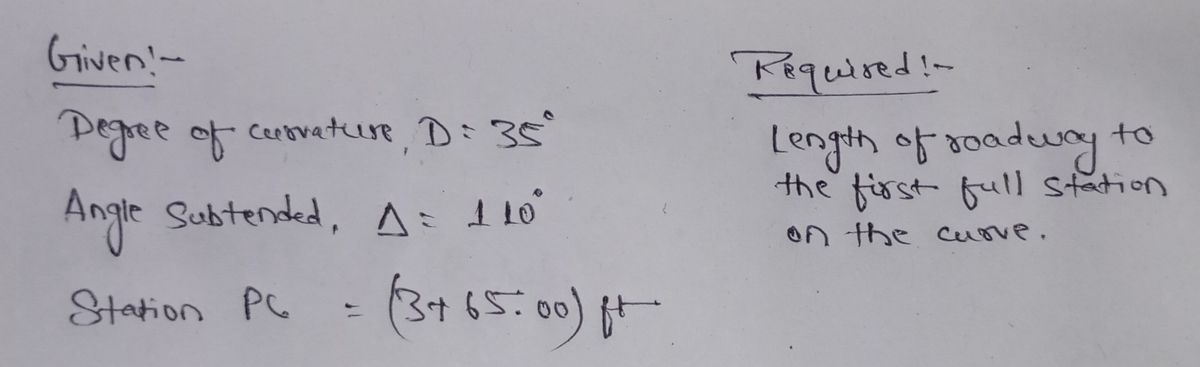 Given:-
Required:-
Degree of curvature, D = 35°
Angle Subtended, Δ = 110°
Station PC = (3+65.00) ft
Length of roadway to
the first full station
on the curve.